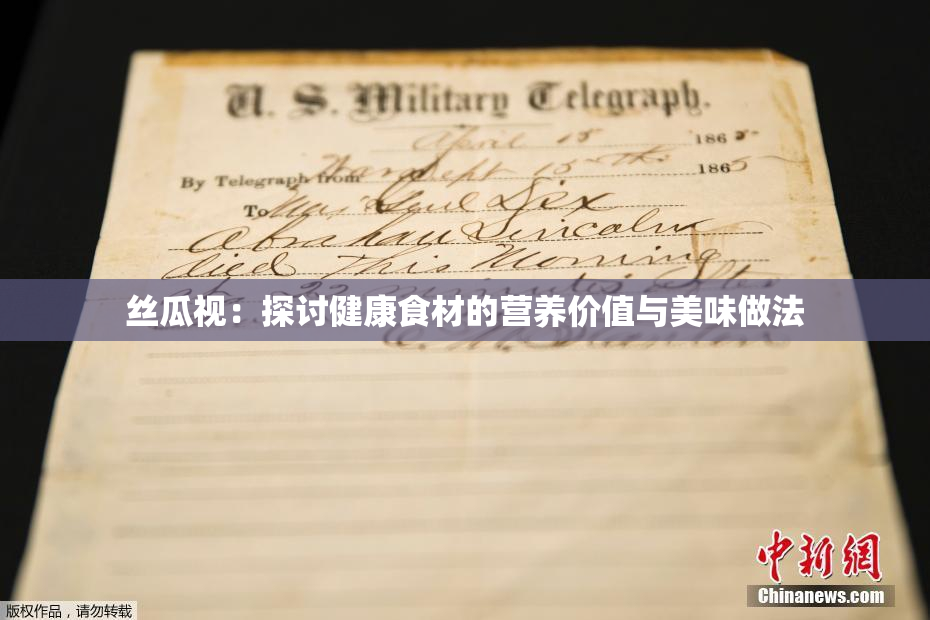 U. S. Military Telegraph.
April 15 1865
By Telegraph from War Dept 15th 1865
To Maj Genl Dix
Abraham Lincoln
died This Morning
at 22 minutes after
丝瓜视：探讨健康食材的营养价值与美味做法
E. M. Stanton
中新网
Chinanews.com
版权作品，请勿转载